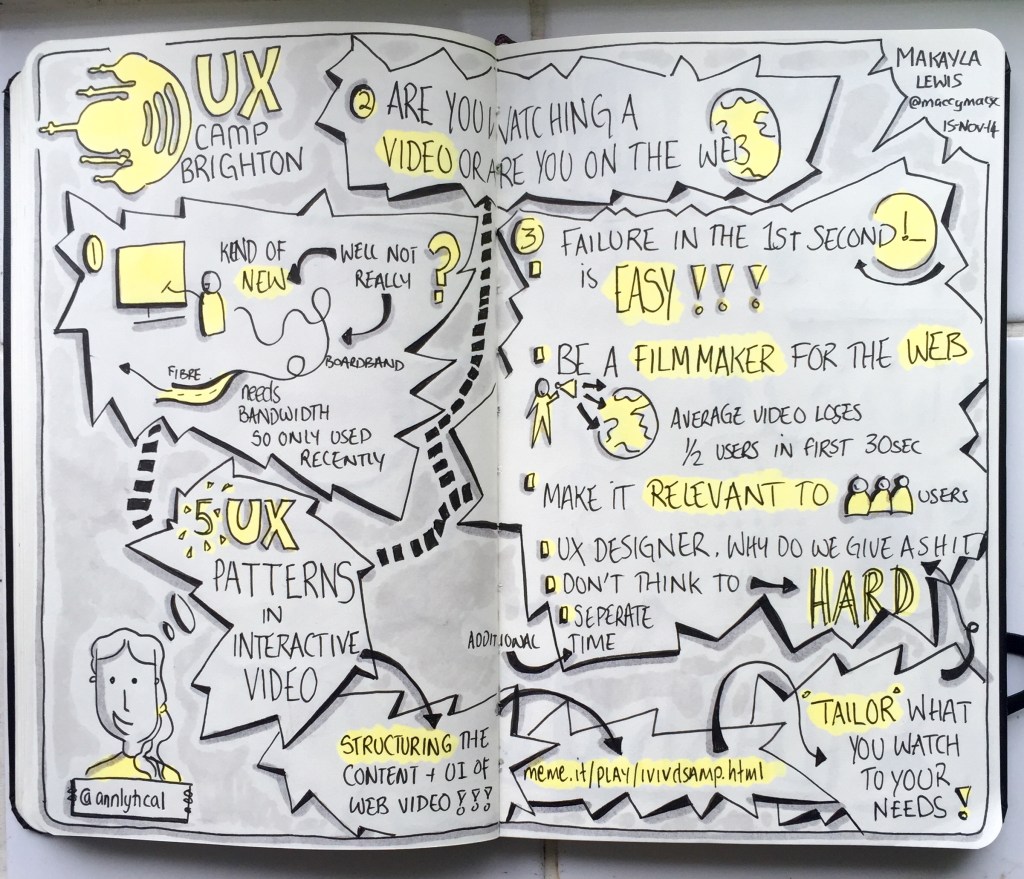 UX
CAMP
BRIGHTON
MAKAYLA
LEWIS
@maccymacx
15-NOV-14
5 UX
PATTERNS
IN
INTERACTIVE
VIDEO
@annlytical
1
KIND OF
NEW
WELL NOT
REALLY ?
BOARDBAND
FIBRE
needs
BANDWIDTH
SO ONLY USED
RECENTLY
2 ARE YOU WATCHING A
VIDEO OR ARE YOU ON THE WEB
3 FAILURE IN THE 1ST SECOND
is EASY!!!
BE A FILMMAKER FOR THE WEB
AVERAGE VIDEO LOSES
1/2 USERS IN FIRST 30SEC
MAKE IT RELEVANT TO USERS
UX DESIGNER, WHY DO WE GIVE A SHIT
DON'T THINK TO HARD
SEPERATE
ADDITIONAL TIME
STRUCTURING THE
CONTENT + UI OF
WEB VIDEO!!!
meme.it/PLAY/ivivdsamp.html
"TAILOR" WHAT
YOU WATCH
TO YOUR
NEEDS!